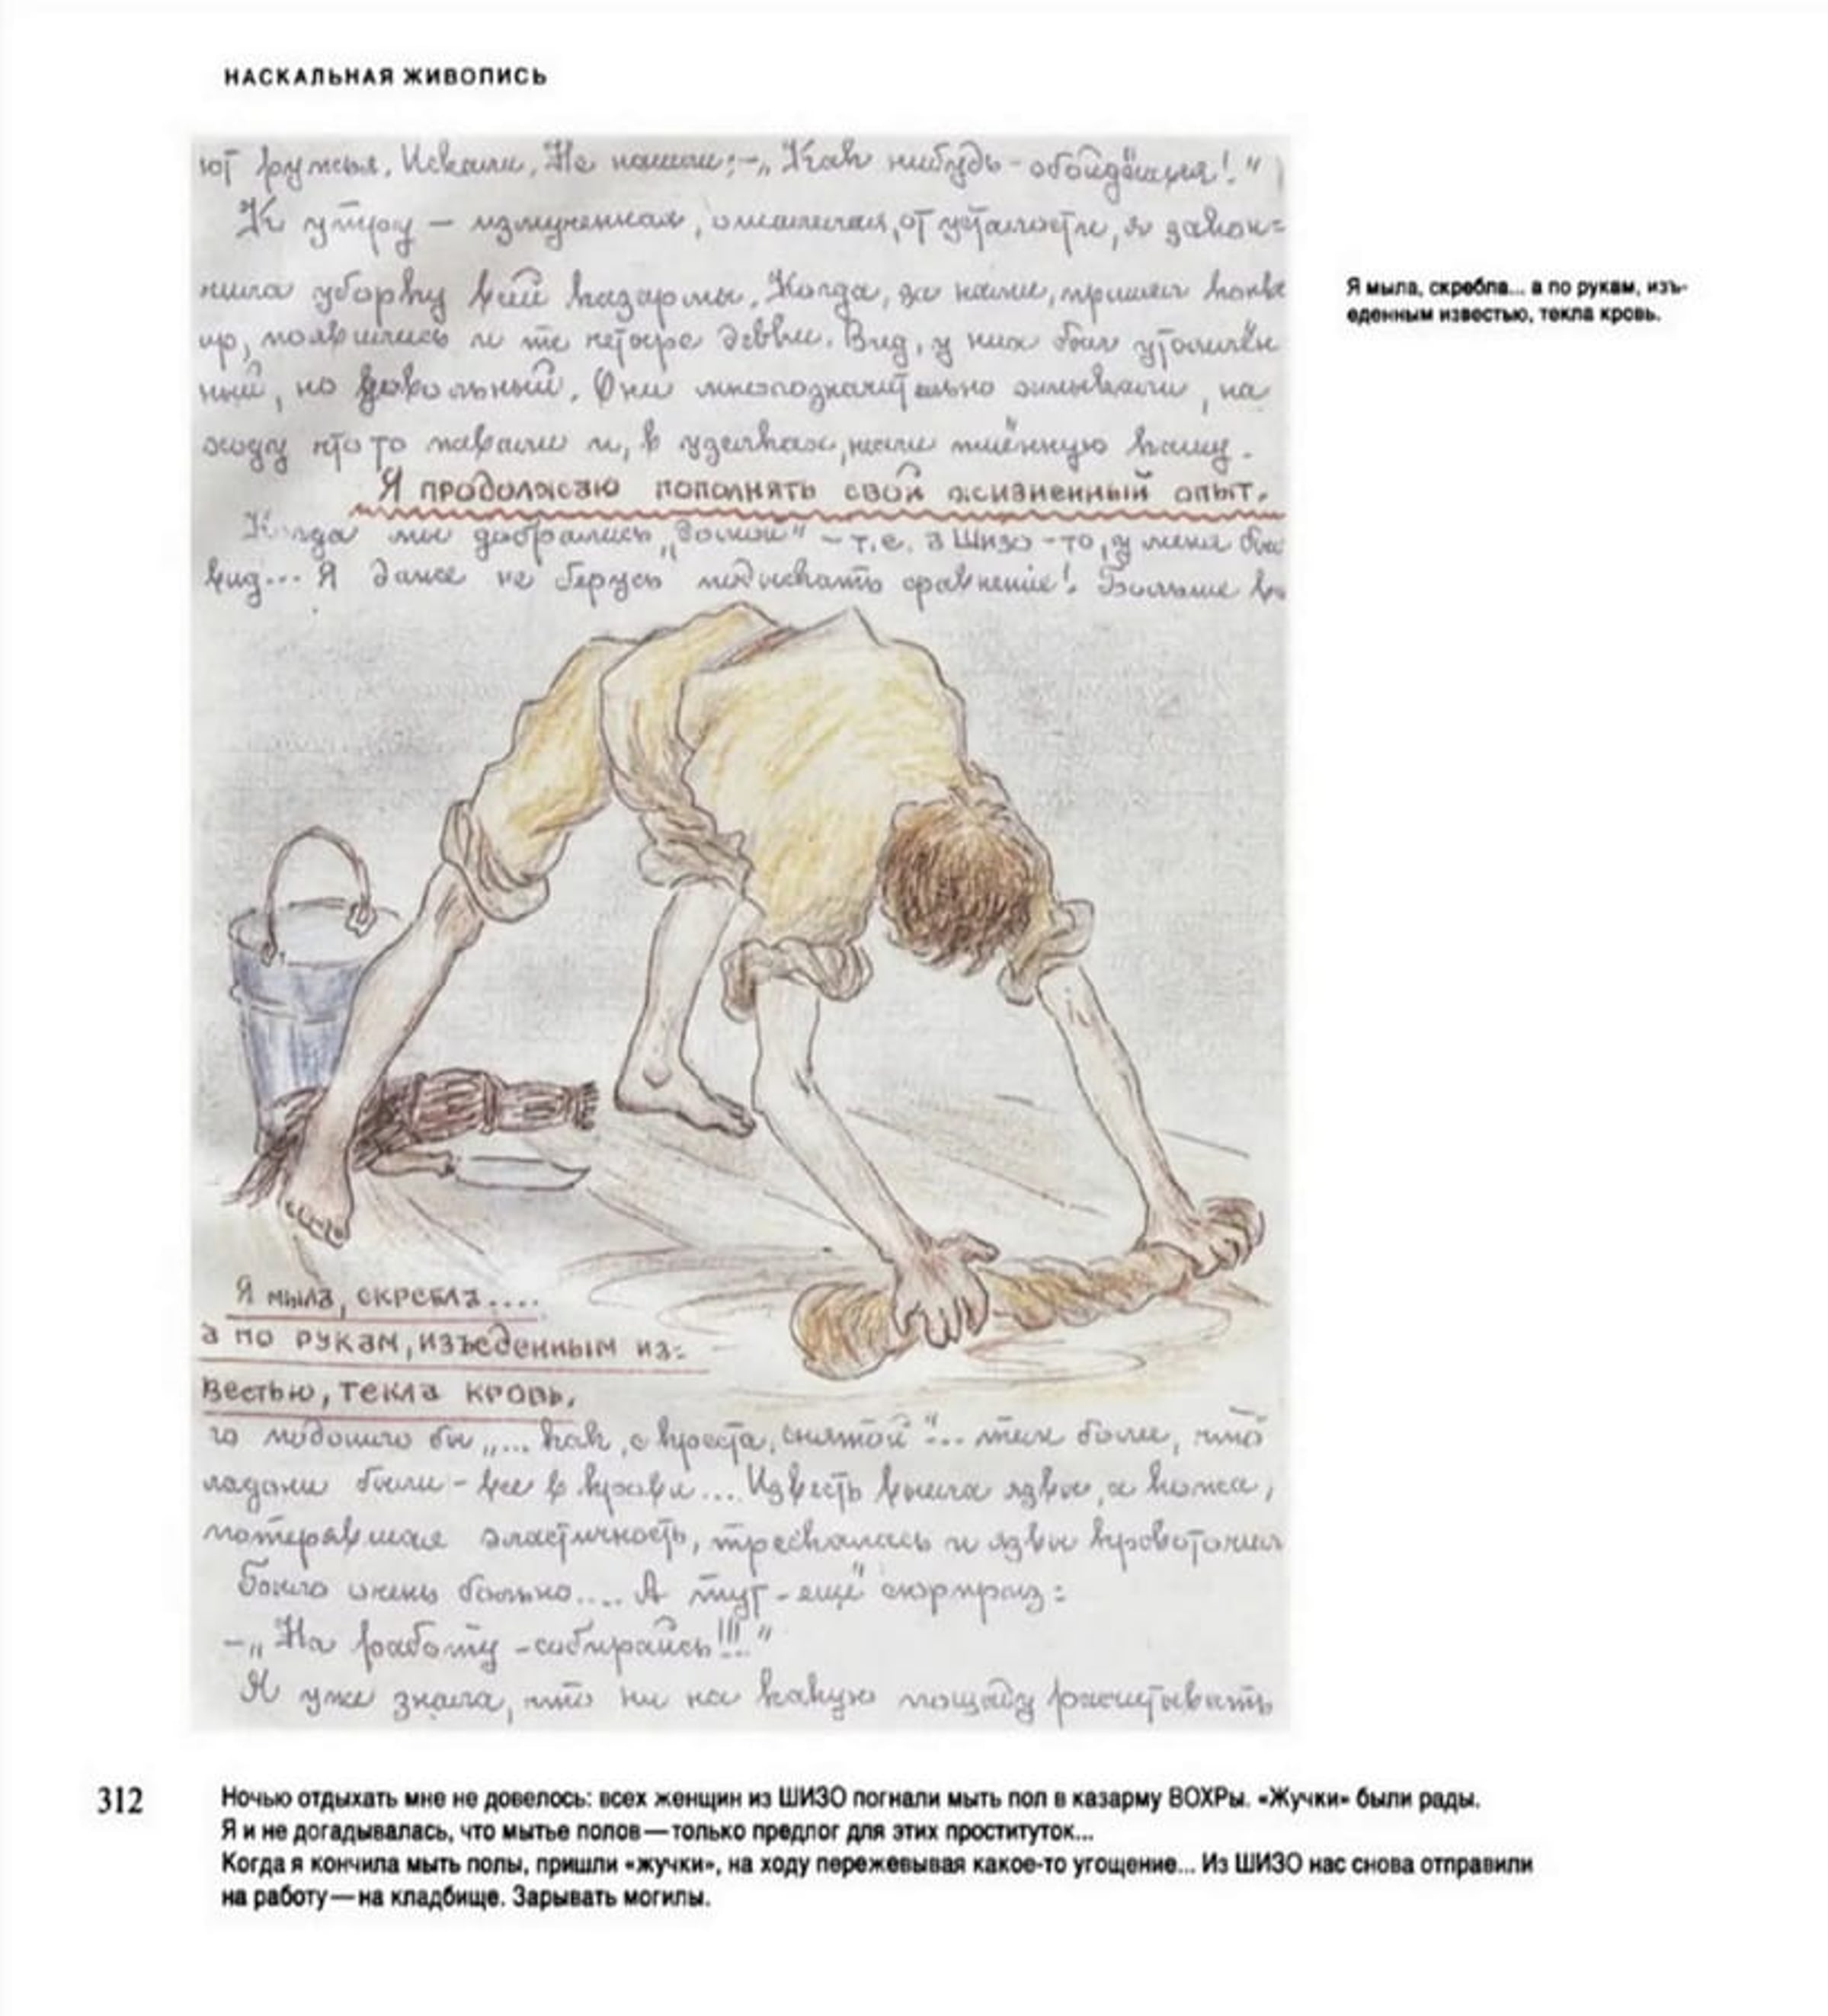 НАСКАЛЬНАЯ ЖИВОПИСЬ
ют ружья. Искали, Не нашли; –„ Как нибудь - обойдёшься!. "
К утру – измученная, от усталости, я закон=
чила уборку всей казармы. Когда, за нами, пришёл конво
ир, появились и те четыре девки. Вид, у них был утомлён
ный, но довольный. Они многозначительно, на
ходу что то жевали и, в пшённую кашу.
Я продолжаю пополнять свой жизненный опыт.
Когда мы добрались „домой" – т.е. в Шизо – то, у меня был
вид... Я даже не берусь подыскать сравнение!. Больше все
Я мыла, скребла....
а по рукам, изъеденным из=
вестью, текла кровь.
го подошло бы „... как, с креста, снятой"!... тем более, что
ладони были – все в крови... Известь выела язвы, а кожа,
потерявшая эластичность, трескалась и язвы кровоточили
Было очень больно.... А тут - ещё сюрприз:
–„ На работу - собирайсь!!!"
Я уже знала, что ни на какую пощаду расчитывать
Я мыла, скребла... а по рукам, изъ-
еденным известью, текла кровь.
312
Ночью отдыхать мне не довелось: всех женщин из ШИЗО погнали мыть пол в казарму ВОХРы. «Жучки» были рады.
Я и не догадывалась, что мытье полов—только предлог для этих проституток...
Когда я кончила мыть полы, пришли «жучки», на ходу пережевывая какое-то угощение... Из ШИЗО нас снова отправили
на работу—на кладбище. Зарывать могилы.